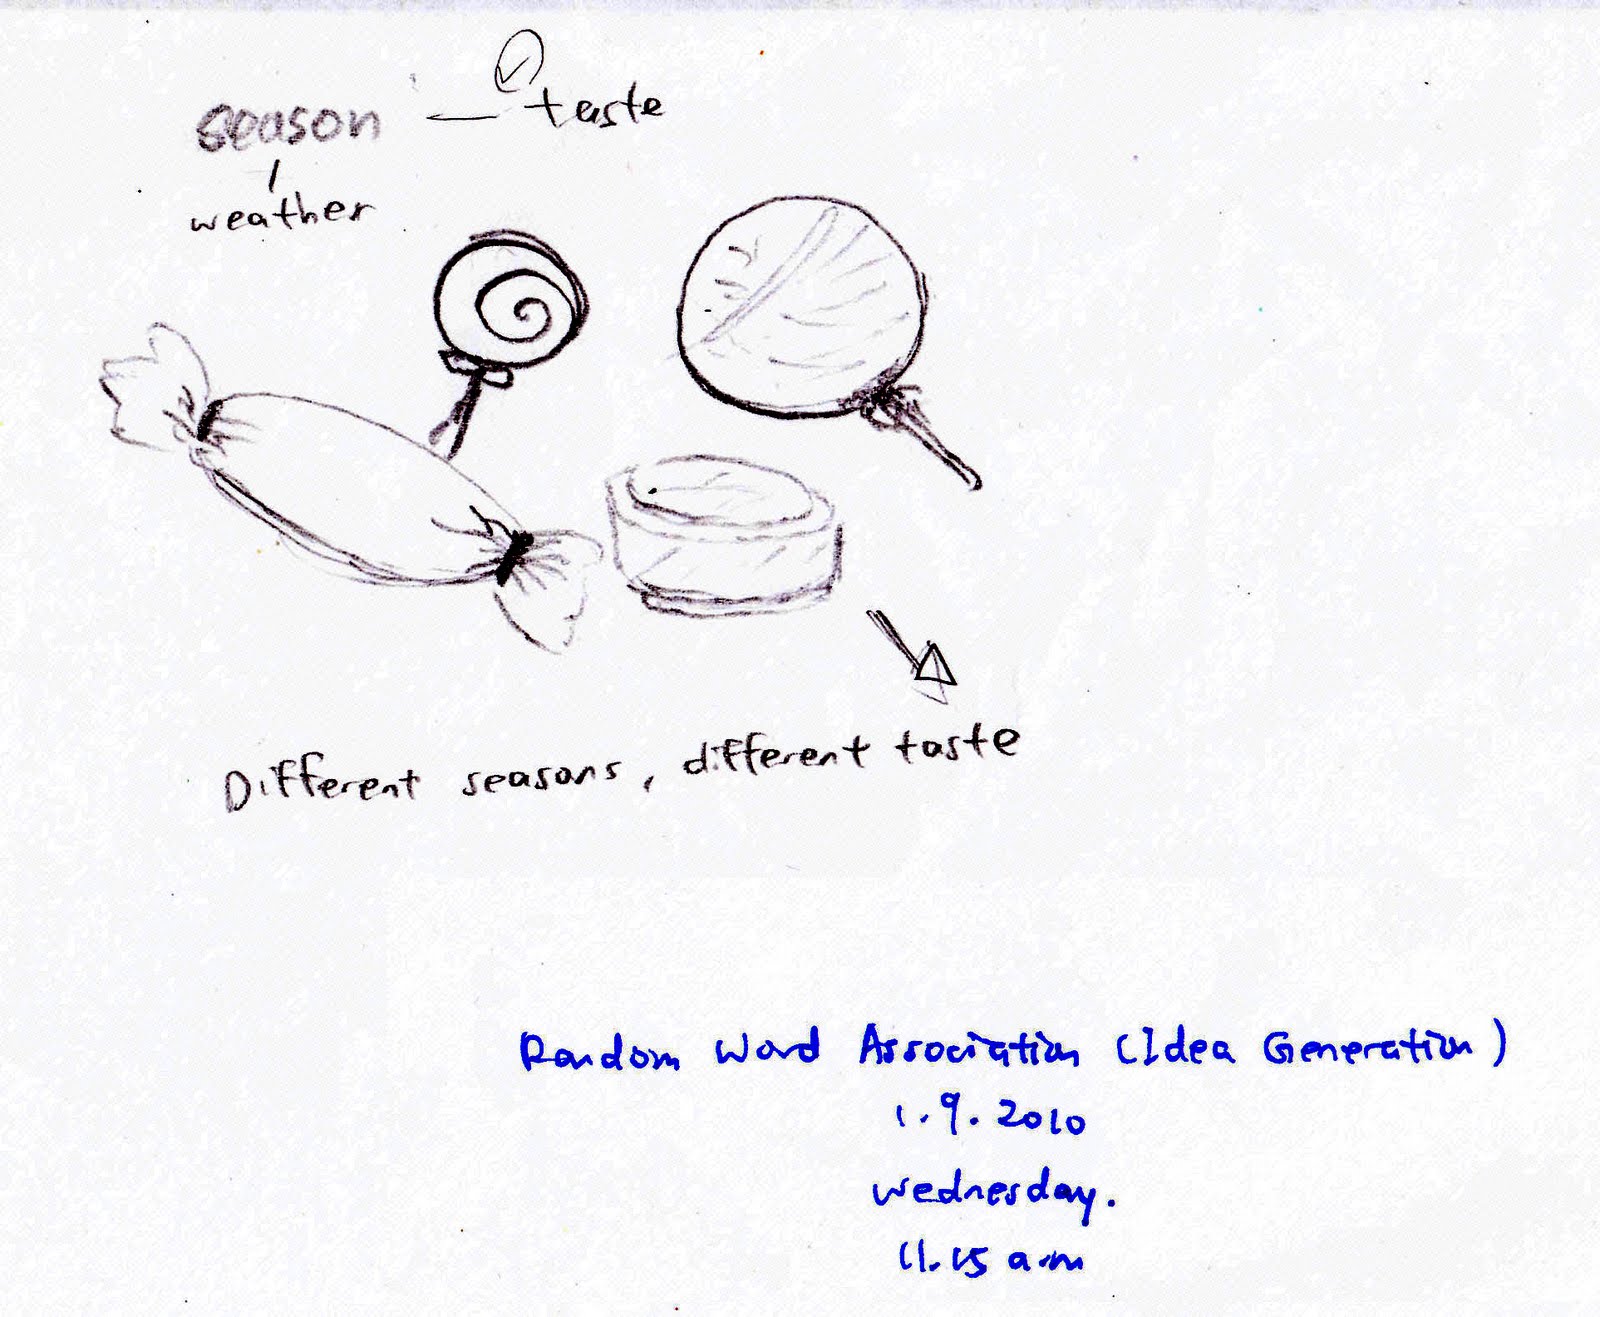 season — taste
weather
Different seasons, different taste
Random Word Association (Idea Generation)
1.9.2010
Wednesday.
11.15 a.m